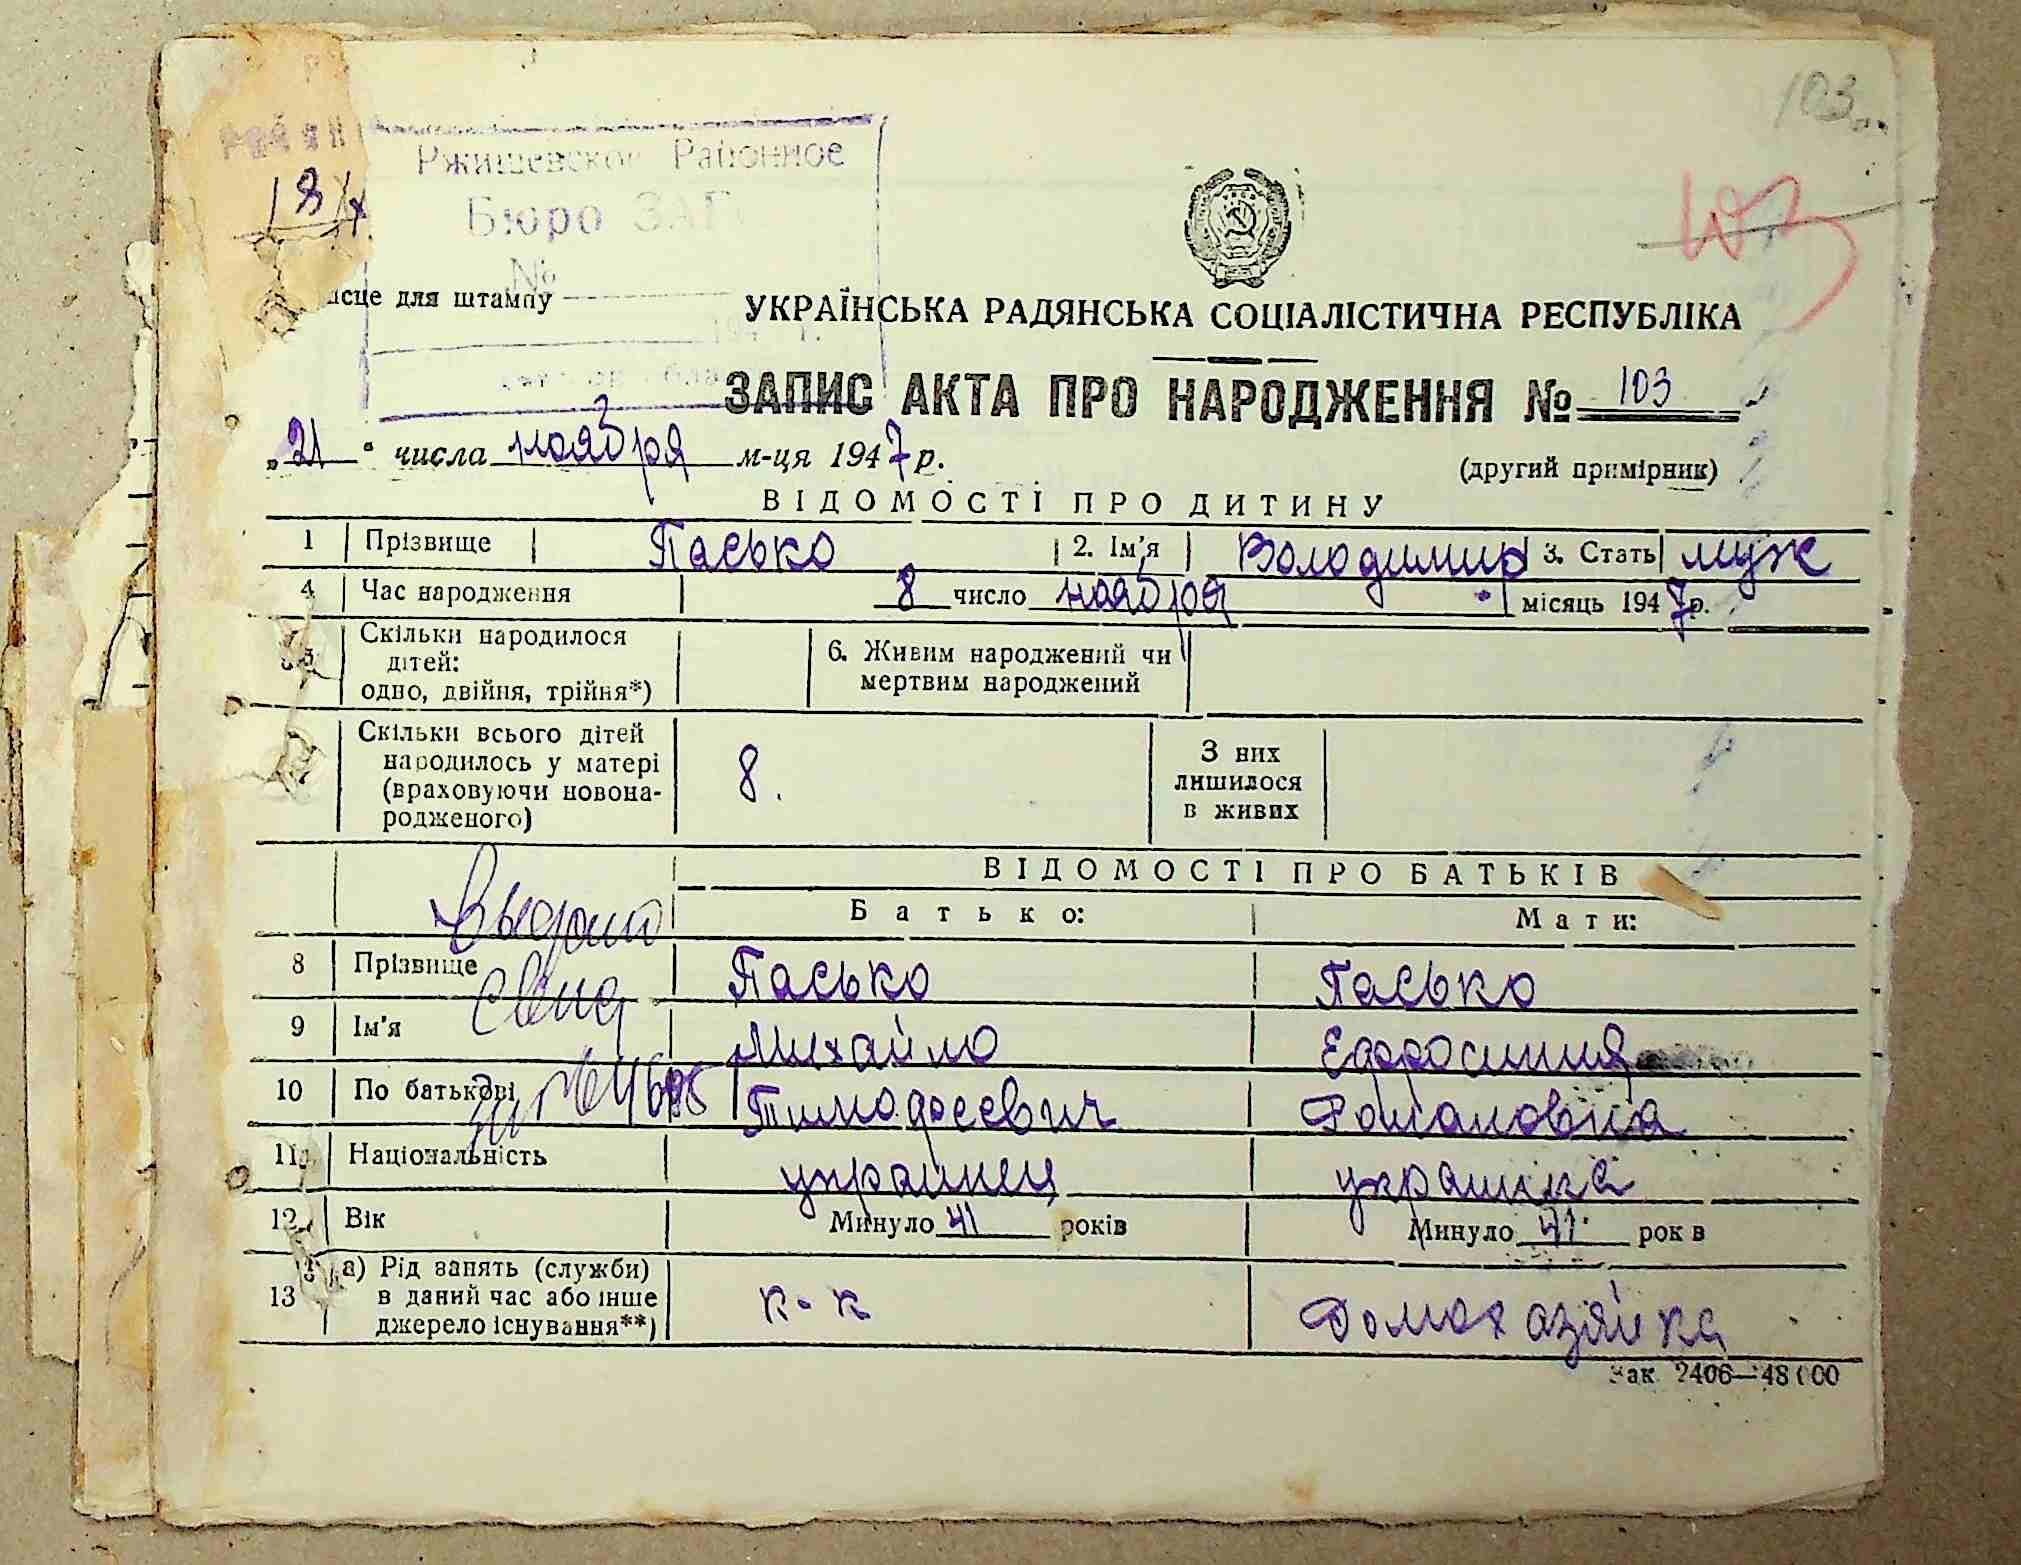 103
Ржищевское Районное
18/х
Бюро ЗАГ
№
103
ісце для штампу
УКРАЇНСЬКА РАДЯНСЬКА СОЦІАЛІСТИЧНА РЕСПУБЛІКА
194 г.
ЗАПИС АКТА ПРО НАРОДЖЕННЯ № 103
„21“ числа ноября м-ця 1947 р.
(другий примірник)
ВІДОМОСТІ ПРО ДИТИНУ
1 Прізвище Пасько 2. Ім'я Володимир 3. Стать муж
4 Час народження 8 число ноября місяць 1947 р.
5 Скільки народилося дітей: одно, двійня, трійня*) 6. Живим народжений чи мертвим народжений
Скільки всього дітей народилось у матері (враховуючи новона-родженого) 8. З них лишилося в живих
ВІДОМОСТІ ПРО БАТЬКІВ
Батько: Мати:
8 Прізвище Пасько Пасько
9 Ім'я Михайло Ефросиния
10 По батькові Тимофеевич Романовна
11 Національність украинец украинка
12 Вік Минуло 41 років Минуло 41 рок в
13 а) Рід занять (служби) в даний час або інше джерело існування**) к-к Домохазяйка
Зак 2406—48000